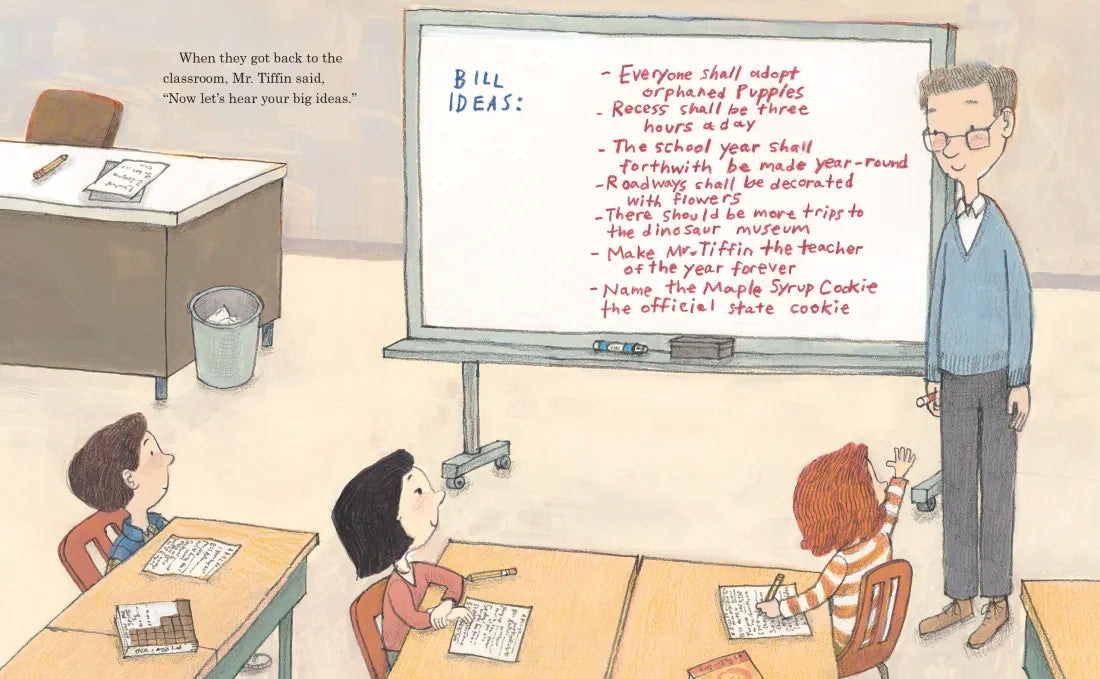 When they got back to the
classroom, Mr. Tiffin said,
“Now let’s hear your big ideas.”
BILL
IDEAS:
- Everyone shall adopt
orphaned Puppies
- Recess shall be three
hours a day
- The school year shall
forthwith be made year-round
- Roadways shall be decorated
with flowers
- There should be more trips to
the dinosaur museum
- Make Mr. Tiffin the teacher
of the year forever
- Name the Maple Syrup Cookie
the official state cookie